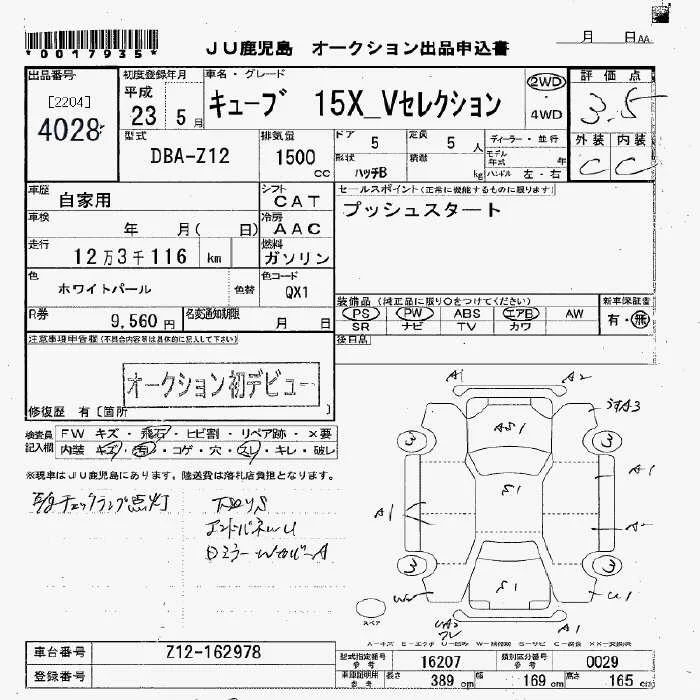 *0017935*
JU鹿児島 オークション出品申込書
月 日AA
出品番号
[2204]
4028
初度登録年月
平成
23 5月
車名・グレード
キューブ 15X_Vセレクション
2WD
・
4WD
評価点
3.5
外装 内装
C C
型式
DBA-Z12
排気量
1500
cc
ドア 5
定員 5 人
形状 ハッチB
積載 kg
ディーラー・並行
モデル年式 年
ハンドル 左・右
車歴
自家用
シフト
CAT
セールスポイント(正常に機能するものに限ります)
プッシュスタート
車検
年 月( 日)
冷房
AAC
走行
12万3千116 km
燃料
ガソリン
色
ホワイトパール
色替
色コード
QX1
R券
9,560 円
名変通知期限
月 日
装備品(純正品に限り〇をつけてください)
PS PW ABS エアB AW
SR ナビ TV カワ
新車保証書
有・無
注意事項申告欄(不具合内容等は具体的に記入して下さい)
後日品
オークション初デビュー
修復歴 有〔箇所 〕
検査員記入欄
FW キズ・飛石・ヒビ割・リペア跡・×要
内装 キズ・汚・コゲ・穴・スレ・キレ・破レ
※現車はJU鹿児島にあります。陸送費は落札店負担となります。
チェックランプ点灯
A1 A2
A3
AS1
3 3
S1
A1 A1
3 3
S1
U1
A1
スペア
車台番号 Z12-162978
登録番号
型式指定番号 参考 16207
類別区分番号 参考 0029
車庫証明用 参考 長さ 389 cm 幅 169 cm 高さ 165 cm